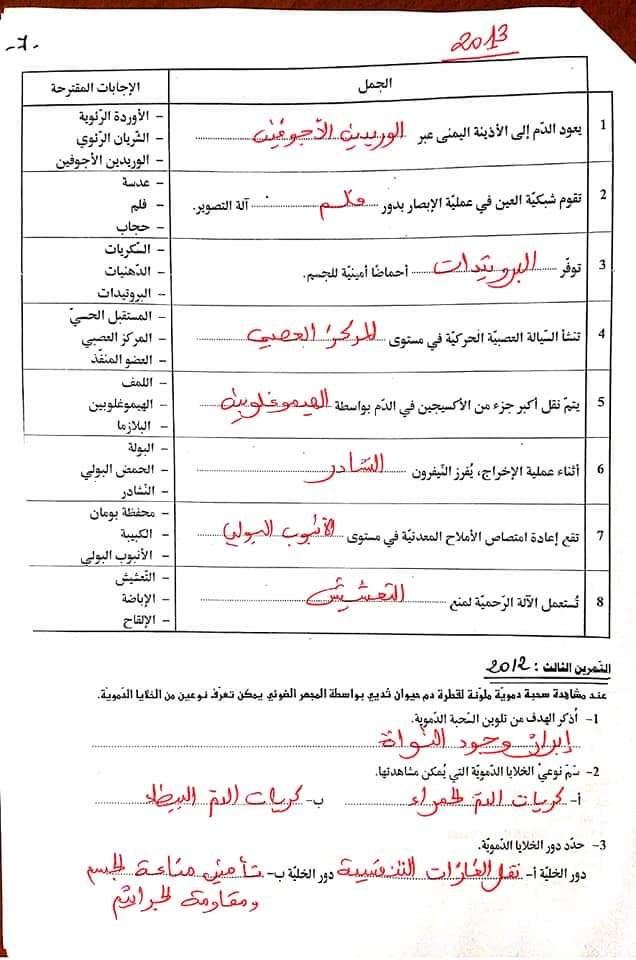 -7-
2013
الجمل
الإجابات المقترحة
1
يعود الدّم إلى الأذينة اليمنى عبر الوريدين الأجوفين
– الأوردة الرّئوية
– الشّريان الرّئوي
– الوريدين الأجوفين
2
تقوم شبكيّة العين في عمليّة الإبصار بدور فلم آلة التصوير.
– عدسة
– فلم
– حجاب
3
توفّر البروتيدات أحماضا أمينيّة للجسم.
– السّكريات
– الدّهنيات
– البروتيدات
4
تنشأ السّيالة العصبيّة الحركيّة في مستوى المركز العصبي
– المستقبل الحسيّ
– المركز العصبي
– العضو المنفّذ
5
يتمّ نقل أكبر جزء من الأكسيجين في الدّم بواسطة الهيموغلوبين
– اللمف
– الهيموغلوبين
– البلازما
6
أثناء عملية الإخراج، يُفرز النّيفرون النشادر
– البولة
– الحمض البولي
– النّشادر
7
تقع إعادة امتصاص الأملاح المعدنيّة في مستوى الأنبوب البولي
– محفظة بومان
– الكبيبة
– الأنبوب البولي
8
تُستعمل الآلة الرّحميّة لمنع التعشيش
– التّعشيش
– الإباضة
– الإلقاح
التّمرين الثالث : 2012
عند مشاهدة سحبة دمويّة ملوّنة لقطرة دم حيوان ثديي بواسطة المجهر الضوئي يمكن تعرّف نوعين من الخلايا الدّمويّة.
1- أذكر الهدف من تلوين السّحبة الدّمويّة.
إبراز وجود النواة
2- سَمّ نوعيْ الخلايا الدّمويّة التي يُمكن مشاهدتها.
أ- كريات الدم الحمراء ب- كريات الدم البيضاء
3- حدّد دور الخلايا الدّمويّة.
دور الخلية أ- نقل الغازات التنفسية دور الخليّة ب- تأمين مناعة الجسم
ومقاومة الجراثيم